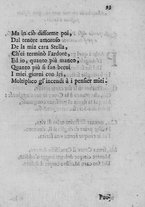 23
Ma in ciò difforme poi,
Dal tenore amoroso
De la mia cara Stella,
Ch'ei terminò l'ardore,
Ed io, quanto più manco,
Quanto più fra breui
I miei giorni con lei,
Moltiplico gl'incendi à i pensier miei.